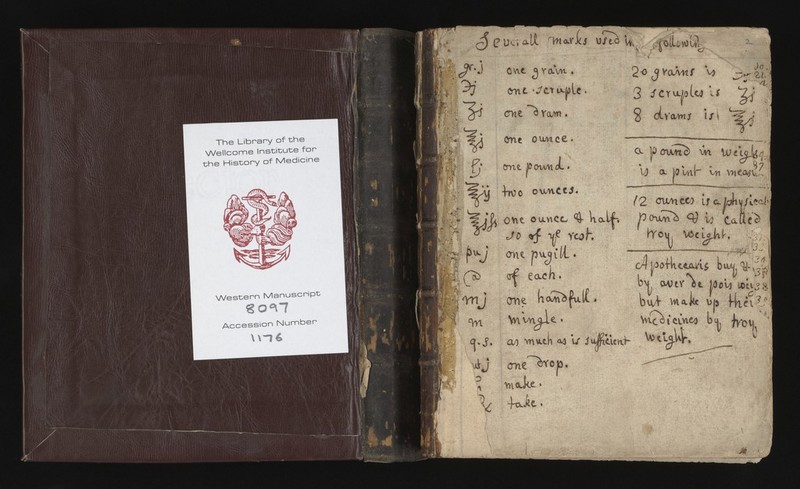 The Library of the
Wellcome Institute for
the History of Medicine
Western Manuscript
8097
Accession Number
1176
Severall marks used in following
gr. j one grain.
℈j one scruple.
ʒj one dram.
℥j one ounce.
one pound.
℥ij two ounces.
one ounce & half.
so of ye rest.
pu j one pugill.
of each.
m j one handfull.
m mingle.
q.s. as much as is sufficient
one drop.
make.
take.
20 grains is
3 scruples is ʒj
8 drams is ℥j
a pound in
is a pint in
12 ounces is a physicat
pound & is called
troy weight.
Apothecaris buy &
by aver de pois
but make up
medicines by troy
weight.